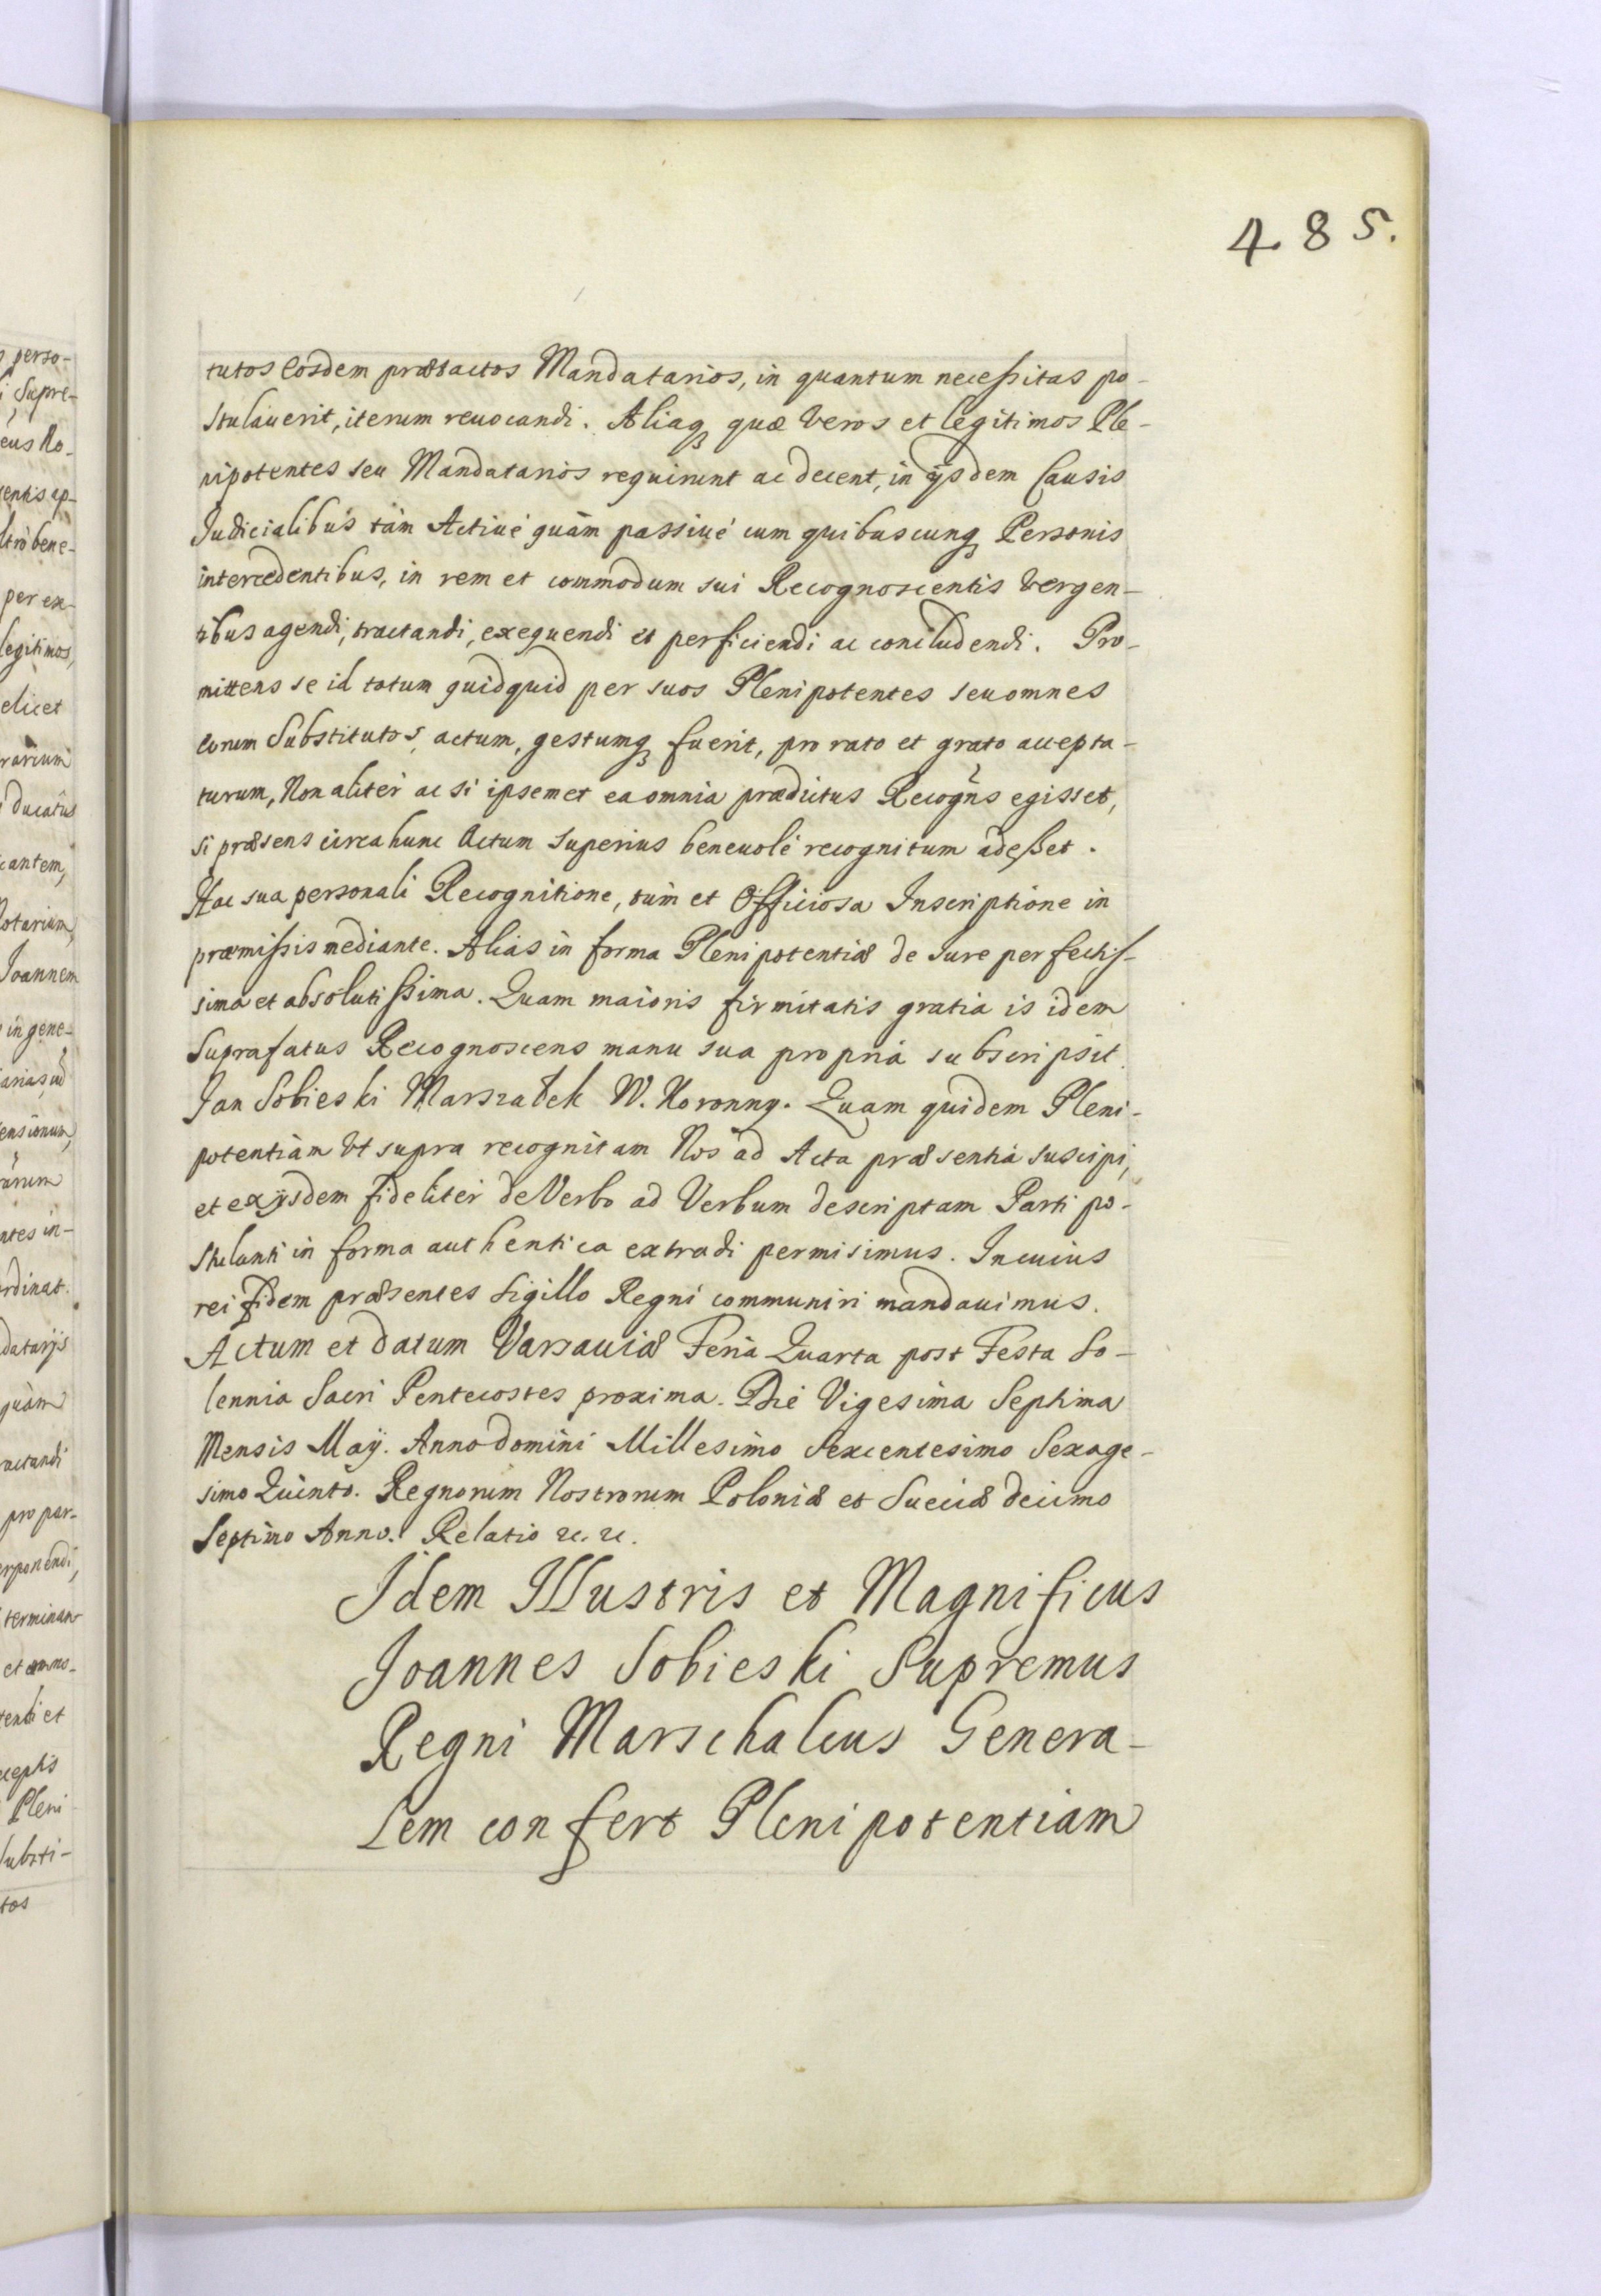 485.
tutos Eosdem prætactos Mandatarios, in quantum neceßitas po-
stulauerit, iterum reuocandi. Aliaqꝫ quæ veros et legitimos Ple-
nipotentes seu Mandatarios requirunt ac decent, in ijsdem Causis
Judicialibus tàm Actiué quàm passiué cum quibuscunqꝫ Personis
intercedentibus, in rem et commodum sui Recognoscentis vergen-
tibus agendi, tractandi, exequendi et perficiendi ac concludendi. Pro-
mittens se id totum quidquid per suos Plenipotentes seu omnes
eorum Substitutos actum, gestumqꝫ fuerit, pro rato et grato accepta-
turum, Non aliter ac si ipsemet ea omnia prædictus Recogñs egisset,
si præsens circa hunc Actum superius beneuolé recognitum adeßet.
Hac sua personali Recognitione, tum et Officiosa Inscriptione in
præmißis mediante. Alias in forma Plenipotentiæ de Jure perfectiß-
sima et absolutißima. Quam maioris firmitatis gratia is idem
Suprafatus Recognoscens manu sua propria subscripsit.
Jan Sobieski Marszałek W. Koronny. Quam quidem Pleni-
potentiam Vt supra recognitam Nos ad Acta præsentia suscipi,
et ex ijsdem fideliter de Verbo ad Verbum descriptam Parti po-
stulanti in forma authentica extradi permisimus. In cuius
rei fidem præsentes Sigillo Regni communiri mandauimus.
Actum et datum Varsauiæ Feria Quarta post Festa So-
lennia Sacri Pentecostes proxima. Die Vigesima Septima
Mensis Maij. Anno Domini Millesimo Sexcentesimo Sexage-
simo Quinto. Regnorum Nostrorum Poloniæ et Sueciæ decimo
Septimo Anno. Relatio &c. &c.
Idem Illustris et Magnificus
Joannes Sobieski Supremus
Regni Marschalcus Genera-
lem confert Plenipotentiam